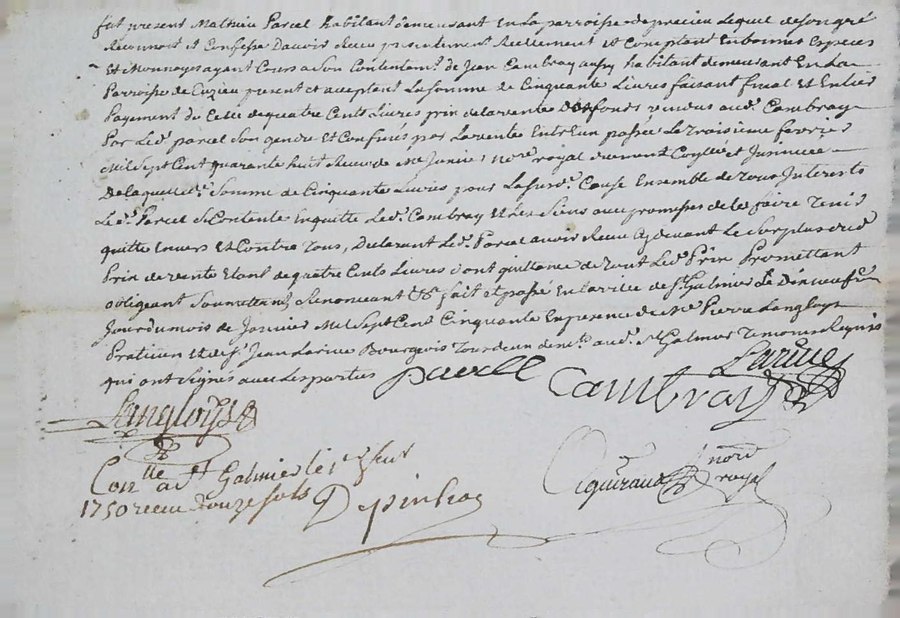 fut present Mathieu Parcel habitant demeurant En La parroisse de precieu Lequel de son gré
Reconnoit et Confesse Davoir Receu presentement Reellement et Comptant En bonnes Especes
Et Monnoyes ayant Cours a Son Contentem.t de Jean Cambray aussy habitant demeurant En La
Parroisse de Cuzieu present et acceptant La Somme de Cinquante Livres faisant final et Entier
Payement de Celle de quatre Cents Livres prix de la vente De fonds vendus aud.t Cambray
Par Led.t parcel Son gendre Et Confinés par La vente Entre Eux passée Le troisieme fevrier
Mil Sept Cent quarante huit Receu de M.e not.re royal dument Conllée et Jnsinuée
De laquelle d.e Somme de Cinquante Livres pour La susd.e Cause Ensemble de tous Interets
Le d.t Parcel Se Contente En quitte Led.t Cambray Et Les Siens avec promesses de les faire Tenir
quitte Envers Et Contre Tous, Declarant Led.t Parcel avoir Receu Cy devant Le Surplus dud.t
Prix de vente Etant de quatre Cents Livres dont quittance de tout Led.t Prix Promettant
obligeant Soumettant Renonceant &c fait et passé En la ville de St Galmier Le Dixneufe
Jour du mois de Janvier Mil Sept Cent Cinquante En presence de M.e Pierre Langloys
Praticien et de s.r Jean Larive Bourgeois Tous deux dem.ts aud.t St Galmier Temoins Requis
qui ont Signés avec Les parties
parcel
Larive
Cambray
Langloys
Con.lle a St Galmier le 1.er
1750 receu douze sols
not.re
royal